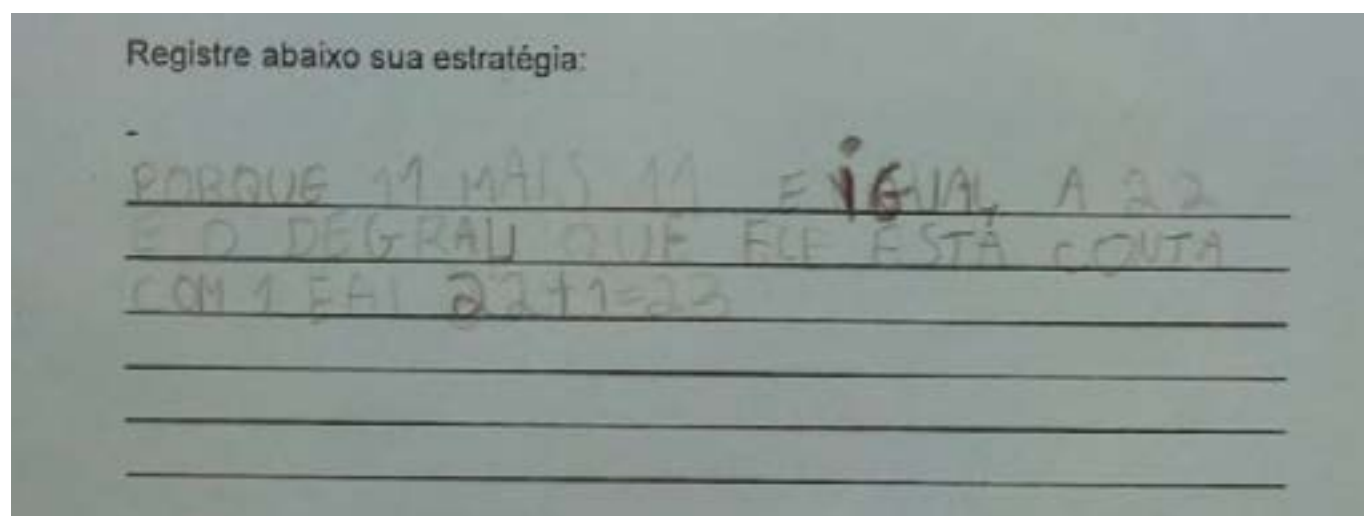 Registre abaixo sua estratégia:
-
PORQUE 11 MAIS 11 E iGUAL A 22
E O DEGRAU QUE ELE ESTÁ CONTA
COM 1 E AI 22+1=23